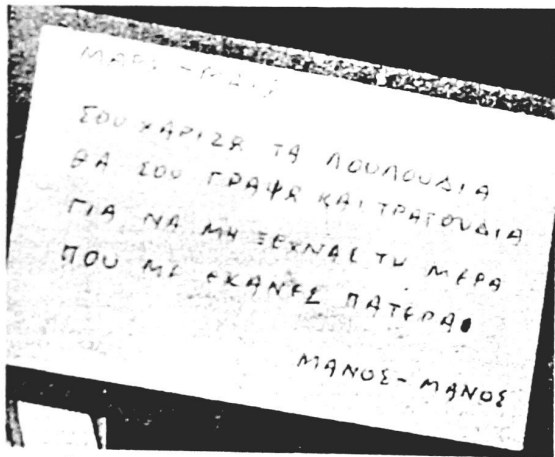 ΣΟΥ ΧΑΡΙΖΩ ΤΑ ΛΟΥΛΟΥΔΙΑ
ΘΑ ΣΟΥ ΓΡΑΨΩ ΚΑΙ ΤΡΑΓΟΥΔΙΑ
ΓΙΑ ΝΑ ΜΗ ΞΕΧΝΑΣ ΤΗ ΜΕΡΑ
ΠΟΥ ΜΕ ΕΚΑΝΕΣ ΠΑΤΕΡΑ
ΜΑΝΟΣ-ΜΑΝΟΣ